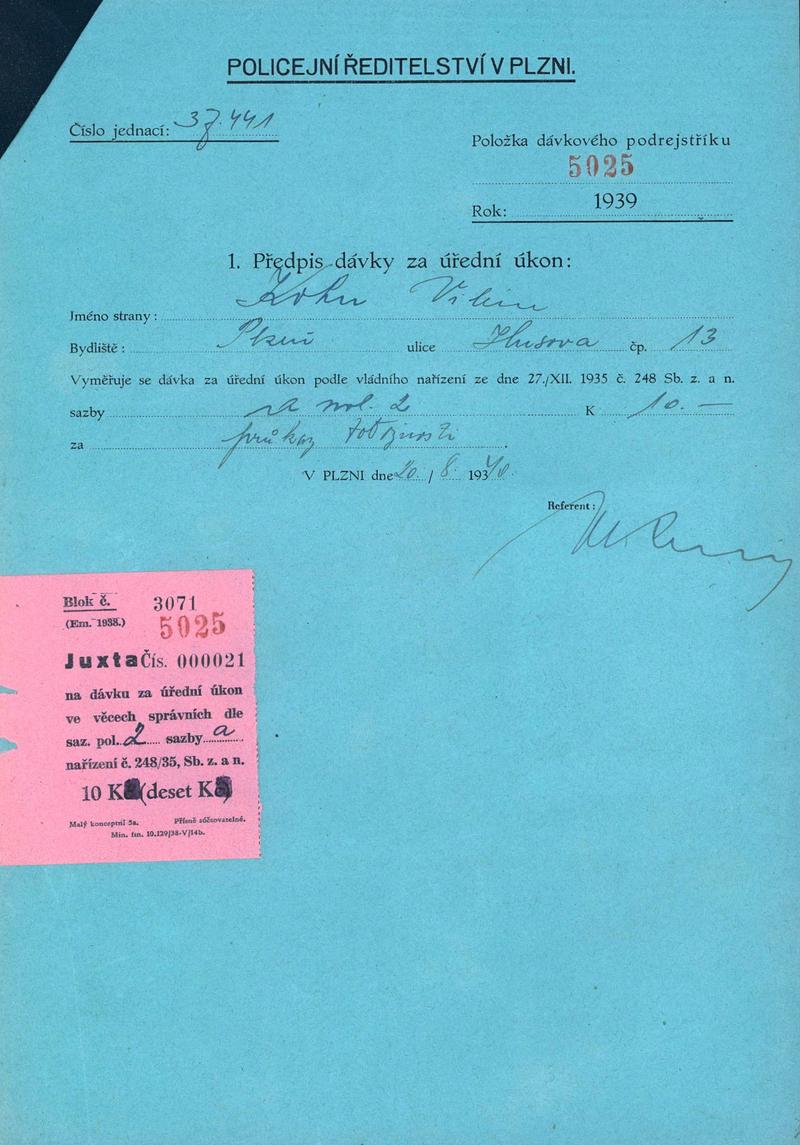 POLICEJNÍ ŘEDITELSTVÍ V PLZNI.
Číslo jednací: 37.441
Položka dávkového podrejstříku
5025
Rok: 1939
1. Předpis dávky za úřední úkon:
Jméno strany: Kohn Vilém
Bydliště: Plzeň ulice Husova čp. 13
Vyměřuje se dávka za úřední úkon podle vládního nařízení ze dne 27./XII. 1935 č. 248 Sb. z. a n.
sazby a pol. 2 K 10.—
za průkaz totožnosti.
V PLZNI dne 20. / 8. 1940
Referent:
Blok č. 3071
(Em. 1938.) 5025
Juxta Čís. 000021
na dávku za úřední úkon
ve věcech správních dle
saz. pol. 2 sazby a
nařízení č. 248/35, Sb. z. a n.
10 K (deset K)
Malý konceptní 5a. Přísně zúčtovatelné.
Min. fin. 10.129/38-V/14b.